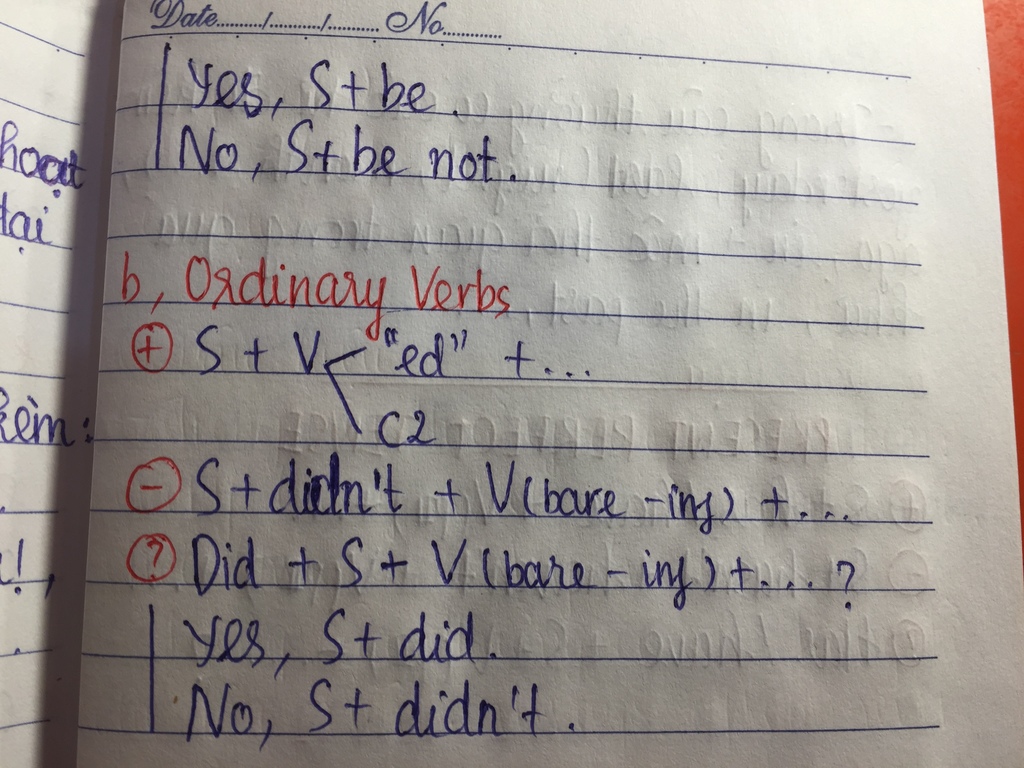 Date......./......../.......... No............
Yes, S + be.
No, S + be not.
b, Ordinary Verbs
+ S + V "ed" + ...
C2
- S + didn't + V (bare - inf) + ...
? Did + S + V (bare - inf) + ... ?
Yes, S + did.
No, S + didn't.
hoạt
tại
kèm:
!,